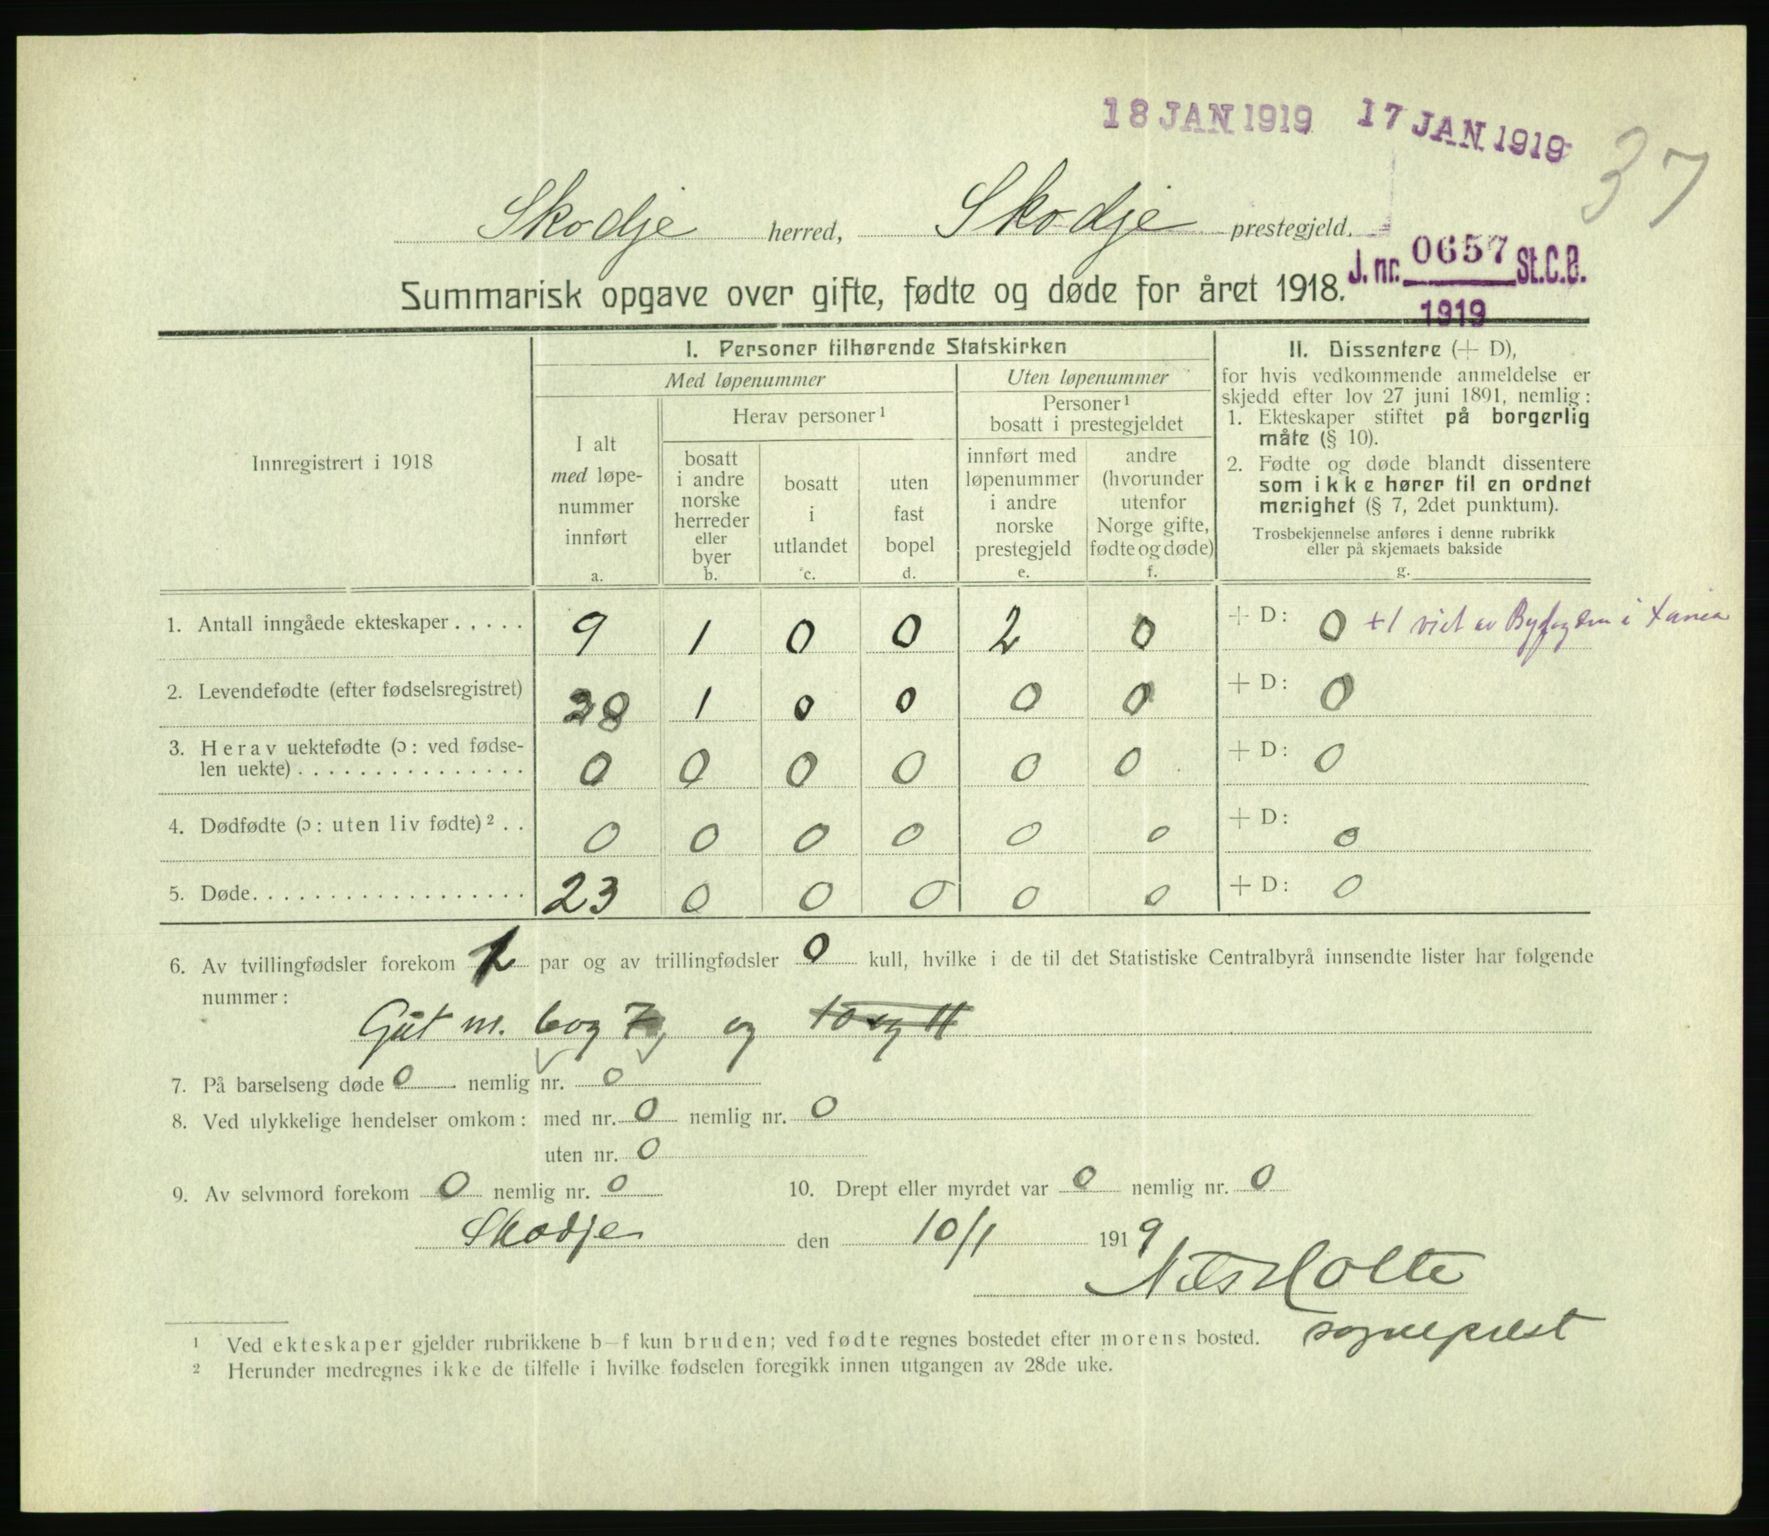 18 JAN 1919 17 JAN 1919
37
Skodje herred, Skodje prestegjeld.
J. nr. 0657 St.C.B.
1919
Summarisk opgave over gifte, fødte og døde for året 1918.
Innregistrert i 1918
I. Personer tilhørende Statskirken
Med løpenummer
Uten løpenummer
I alt
med løpe-
nummer
innført
a.
Herav personer ¹
bosatt
i andre
norske
herreder
eller
byer
b.
bosatt
i
utlandet
c.
uten
fast
bopel
d.
Personer ¹
bosatt i prestegjeldet
innført med
løpenummer
i andre
norske
prestegjeld
e.
andre
(hvorunder
utenfor
Norge gifte,
fødte og døde)
f.
II. Dissentere (+ D),
for hvis vedkommende anmeldelse er
skjedd efter lov 27 juni 1891, nemlig:
1. Ekteskaper stiftet på borgerlig
måte (§ 10).
2. Fødte og døde blandt dissentere
som ikke hører til en ordnet
menighet (§ 7, 2det punktum).
Trosbekjennelse anføres i denne rubrikk
eller på skjemaets bakside
g.
1. Antall inngåede ekteskaper..... 9 1 0 0 2 0 + D: 0 +1 viet av Byfogden i Xania
2. Levendefødte (efter fødselsregistret) 28 1 0 0 0 0 + D: 0
3. Herav uektefødte (ɔ: ved fødse-
len uekte)............... 0 0 0 0 0 0 + D: 0
4. Dødfødte (ɔ: uten liv fødte) ².. 0 0 0 0 0 0 + D: 0
5. Døde.................. 23 0 0 0 0 0 + D: 0
6. Av tvillingfødsler forekom 1 par og av trillingfødsler 0 kull, hvilke i de til det Statistiske Centralbyrå innsendte lister har følgende
nummer:
Gut nr. 6 og 7, og 10 og 11
7. På barselseng døde 0 nemlig nr. 0
8. Ved ulykkelige hendelser omkom: med nr. 0 nemlig nr. 0
uten nr. 0
9. Av selvmord forekom 0 nemlig nr. 0 10. Drept eller myrdet var 0 nemlig nr. 0
Skodje den 10/1 1919
Nils Holte
sogneprest
¹ Ved ekteskaper gjelder rubrikkene b–f kun bruden; ved fødte regnes bostedet efter morens bosted.
² Herunder medregnes ikke de tilfelle i hvilke fødselen foregikk innen utgangen av 28de uke.